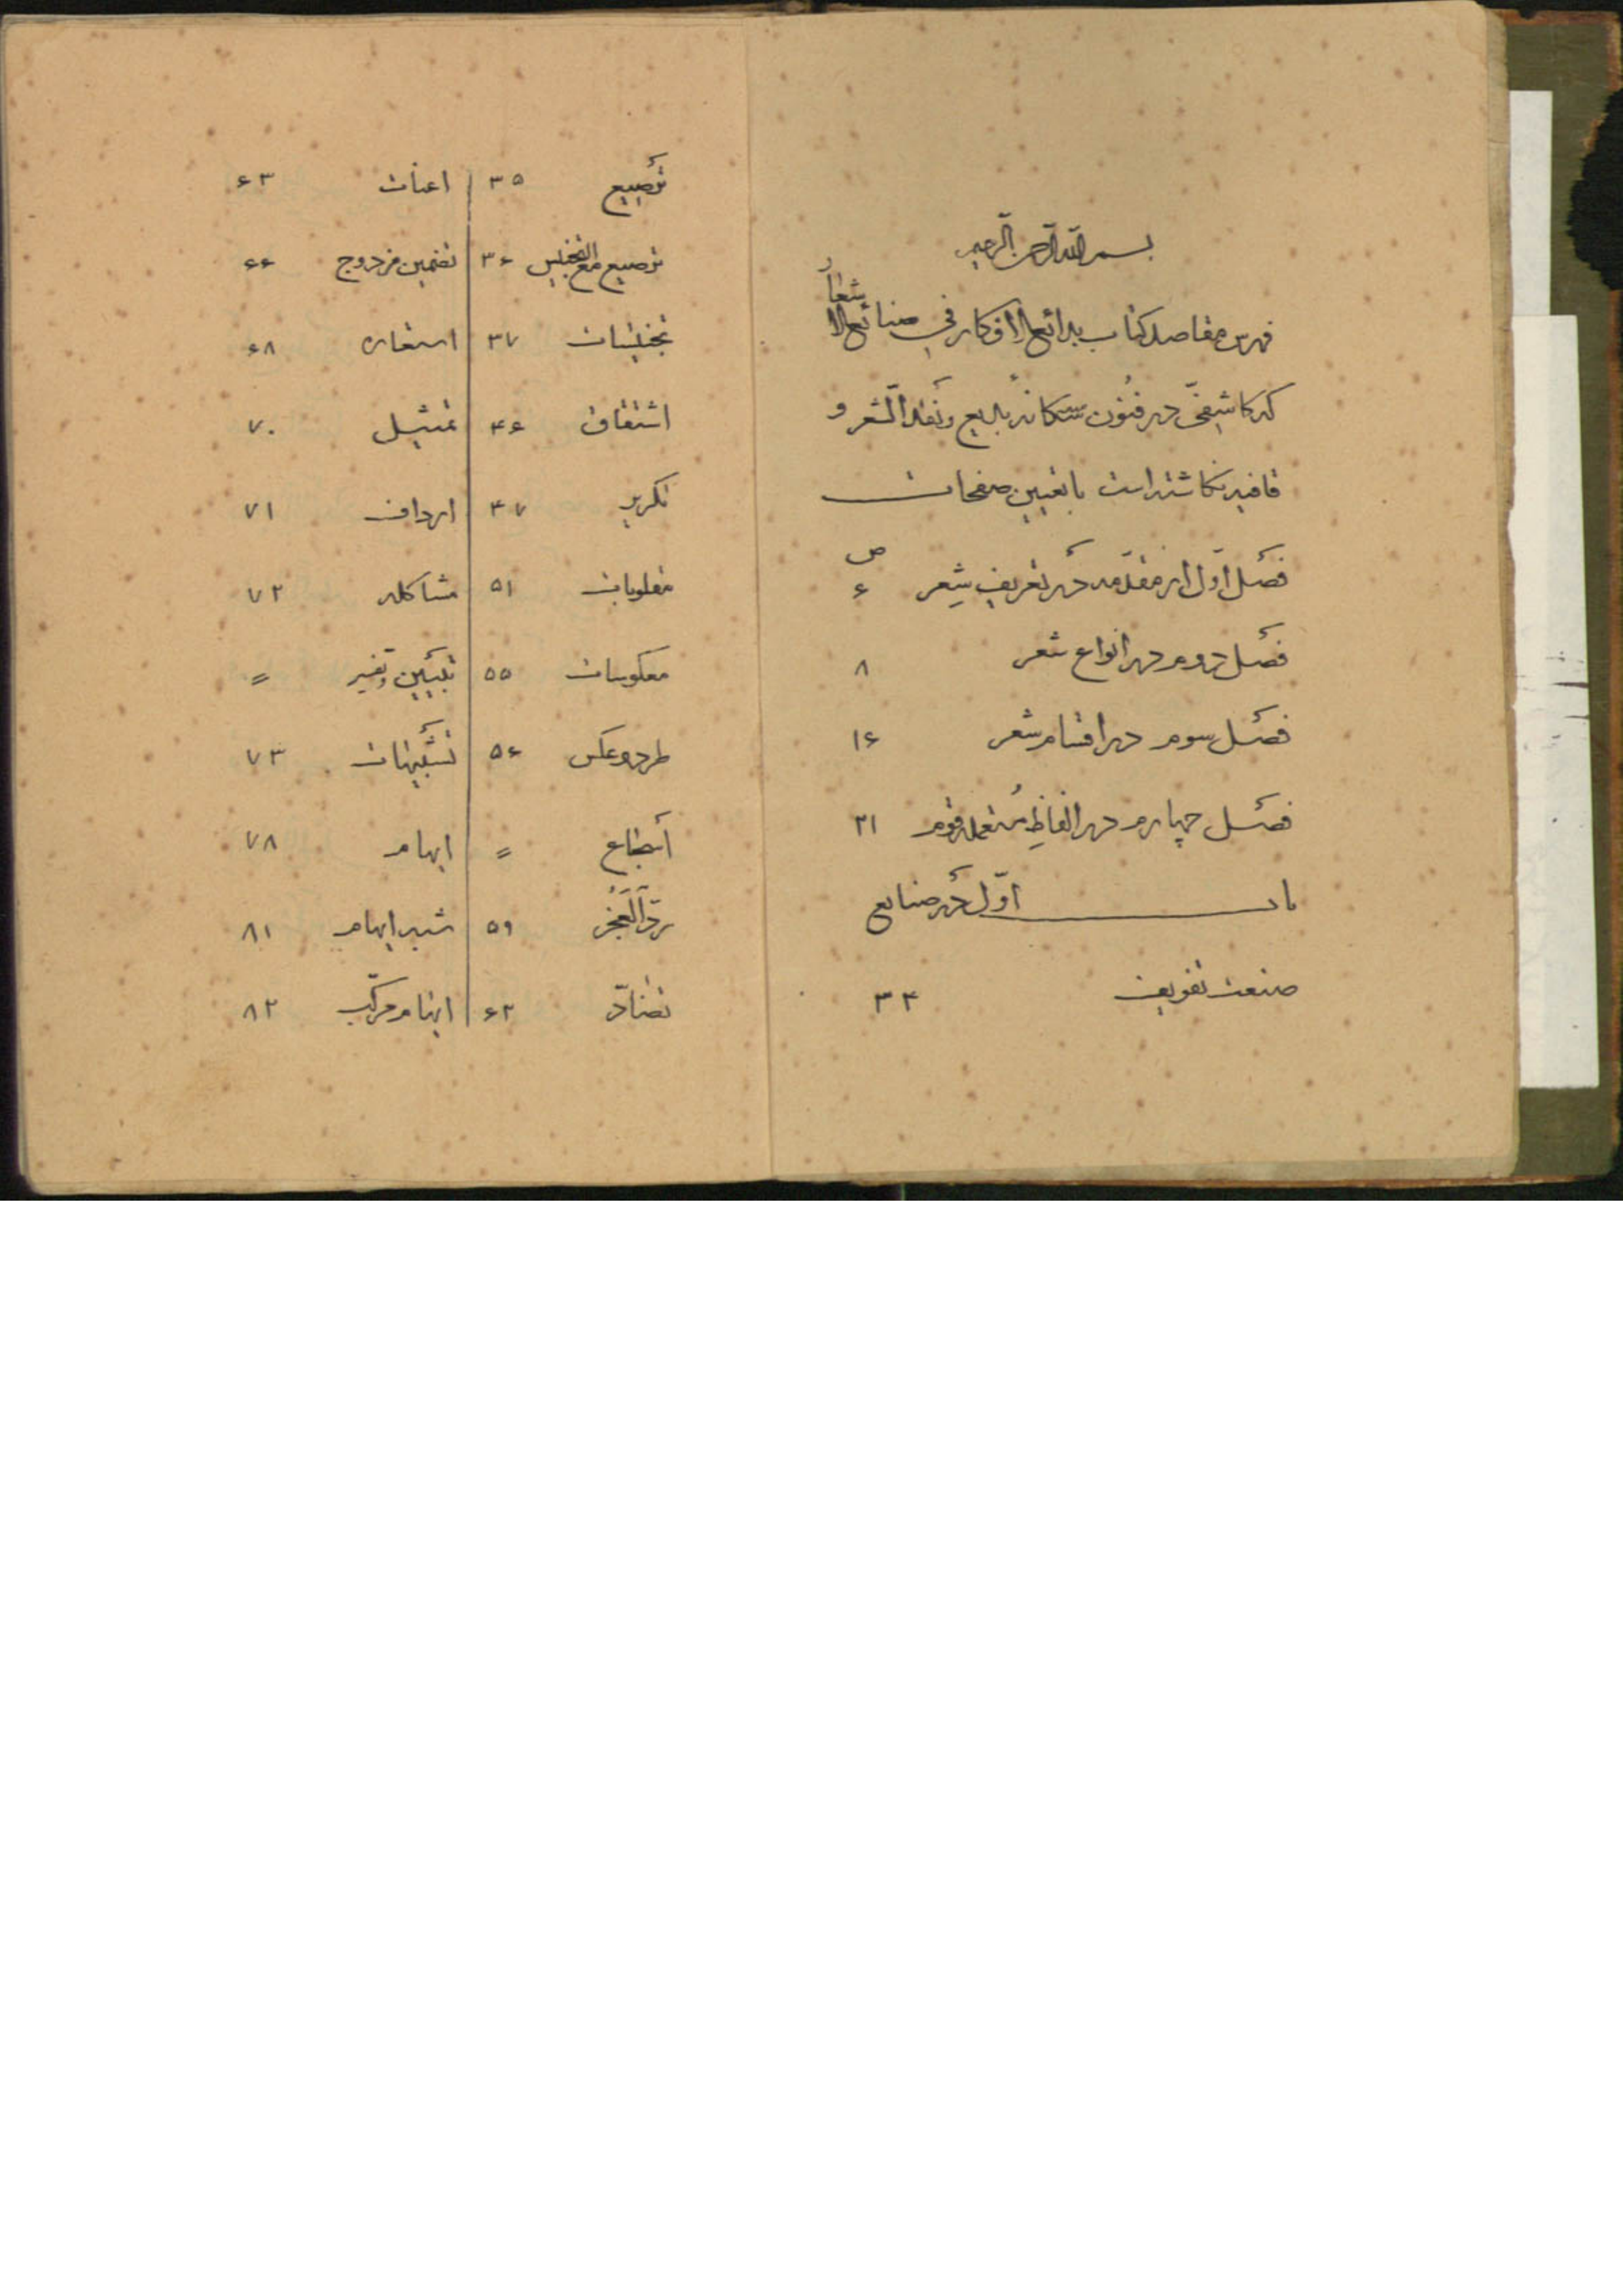 بسم الله الرحمن الرحیم
فهرس مقاصد کتاب بدائع الافکار فی صنائع الاشعار
که کاشفی در فنون سه‌گانه بدیع و نقد الشعر و
قافیه نگاشته است با تعیین صفحات
ص
فصل اول از مقدمه در تعریف شعر ۶
فصل دوم در انواع شعر ۸
فصل سوم در اقسام شعر ۱۶
فصل چهارم در الفاظ مستعمله قوم ۲۱
باب اول در صنایع
صنعت تفویف ۳۴
ترصیع ۳۵ اعنات ۶۳
ترصیع مع التجنیس ۳۶ تضمین مزدوج ۶۶
تجنیسات ۳۷ استعاره ۶۸
اشتقاق ۴۶ تمثیل ۷۰
تکریر ۴۷ ارداف ۷۱
مقلوبات ۵۱ مشاکله ۷۲
معکوسات ۵۵ تبیین و تفسیر =
طرد و عکس ۵۶ تشبیهات ۷۳
أسجاع = ایهام ۷۸
ردّ العجز ۵۹ شبه ایهام ۸۱
تضادّ ۶۲ ایهام مرکّب ۸۲